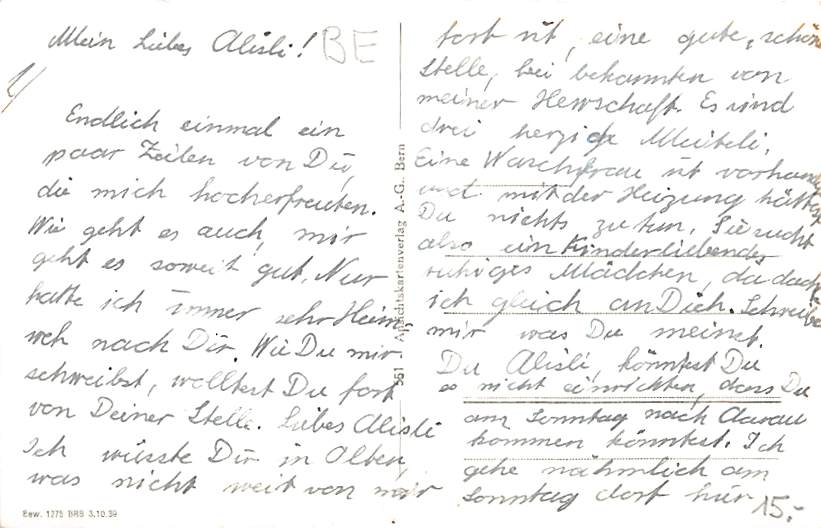 Mein liebes Alisli! BE
1/
Endlich einmal ein
paar Zeilen von Dir,
die mich hocherfreuten.
Wie geht es auch, mir
geht es soweit gut. Nur
hatte ich immer sehr Heim
weh nach Dir. Wie Du mir
schreibst, wolltest Du fort
von Deiner Stelle. Liebes Alisli
Ich wüsste Dir in Olten,
was nicht weit von mir
Bew. 1275 BRB 3.10.39
551 Ansichtskartenverlag A.-G., Bern
fort ist, eine gute, schöne
Stelle, bei bekannten von
meiner Herrschaft. Es sind
drei herzige Meiteli,
eine Waschfrau ist vorhanden
und mit der Heizung hättest
Du nichts zu tun. Sie sucht
also ein Kinderliebendes
ruhiges Mädchen, da dachte
ich gleich an Dich. Schreibe
mir was Du meinst.
Du Alisli, könntest Du
es nicht einrichten, dass Du
am Sonntag nach Aarau
kommen könntest. Ich
gehe nähmlich am
Sonntag dort hin
15.-